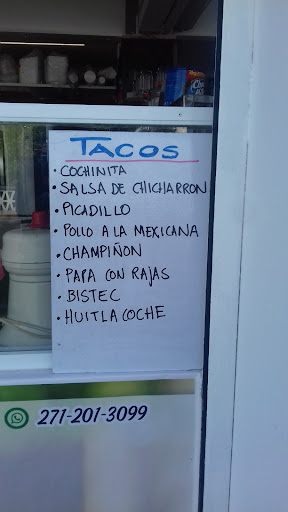 TACOS
• COCHINITA
• SALSA DE CHICHARRON
• PICADILLO
• POLLO A LA MEXICANA
• CHAMPIÑON
• PAPA CON RAJAS
• BISTEC
• HUITLACOCHE
271-201-3099